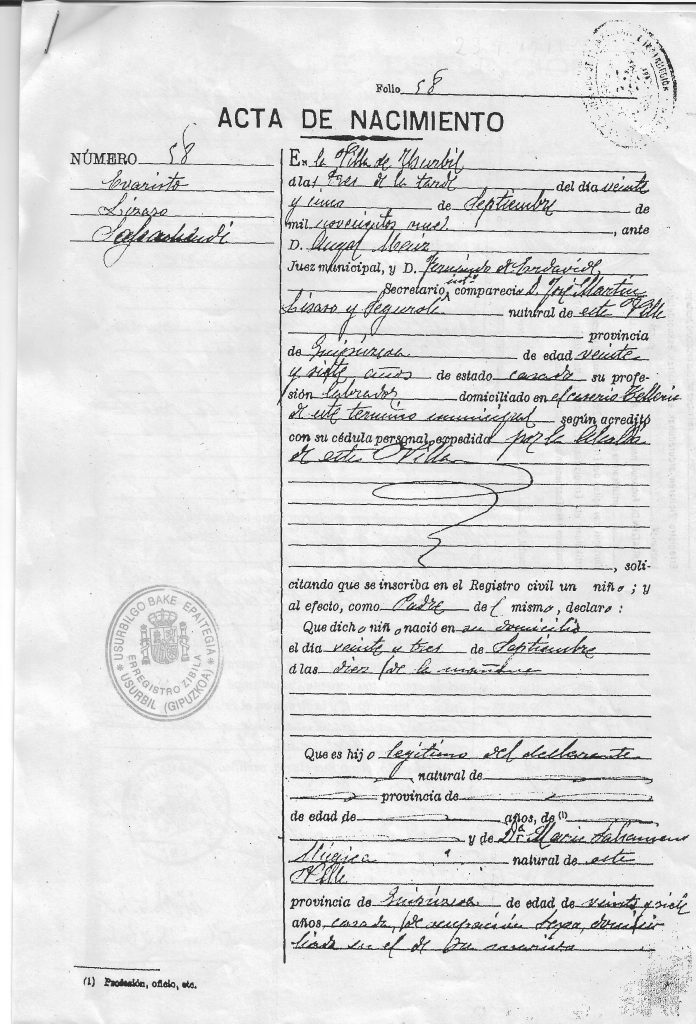 Folio 58
ACTA DE NACIMIENTO
NÚMERO 58
Evaristo
Lizaso
En la Villa de Usurbil
á las tres de la tarde del día veinte
y uno de Septiembre de
mil novecientos nueve, ante
D. Angel
Juez municipal, y D. Fernando de
Secretario, comparecía D. José Martin
Lizaso y Segurola natural de esta Villa
provincia
de Guipúzcoa de edad veinte
y siete años de estado casado su profe-
sión labrador domiciliado en el caserio
de este termino municipal según acreditó
con su cédula personal expedida por la Alcaldia
de esta Villa
, soli-
citando que se inscriba en el Registro civil un niño; y
al efecto, como Padre del mismo, declaro:
Que dicho niño nació en su domicilio
el día veinte y tres de Septiembre
á las diez de la mañana
Que es hijo legitimo del declarante
natural de
provincia de
de edad de años, de (1)
y de D.ª Maria
natural de esta
Villa
provincia de Guipúzcoa de edad de veinte y siete
años, casada, de ocupación domici
liada en el de su marido
(1) Profesión, oficio, etc.
USURBILGO BAKE EPAITEGIA
ERREGISTRO ZIBILA
USURBIL (GIPUZKOA)